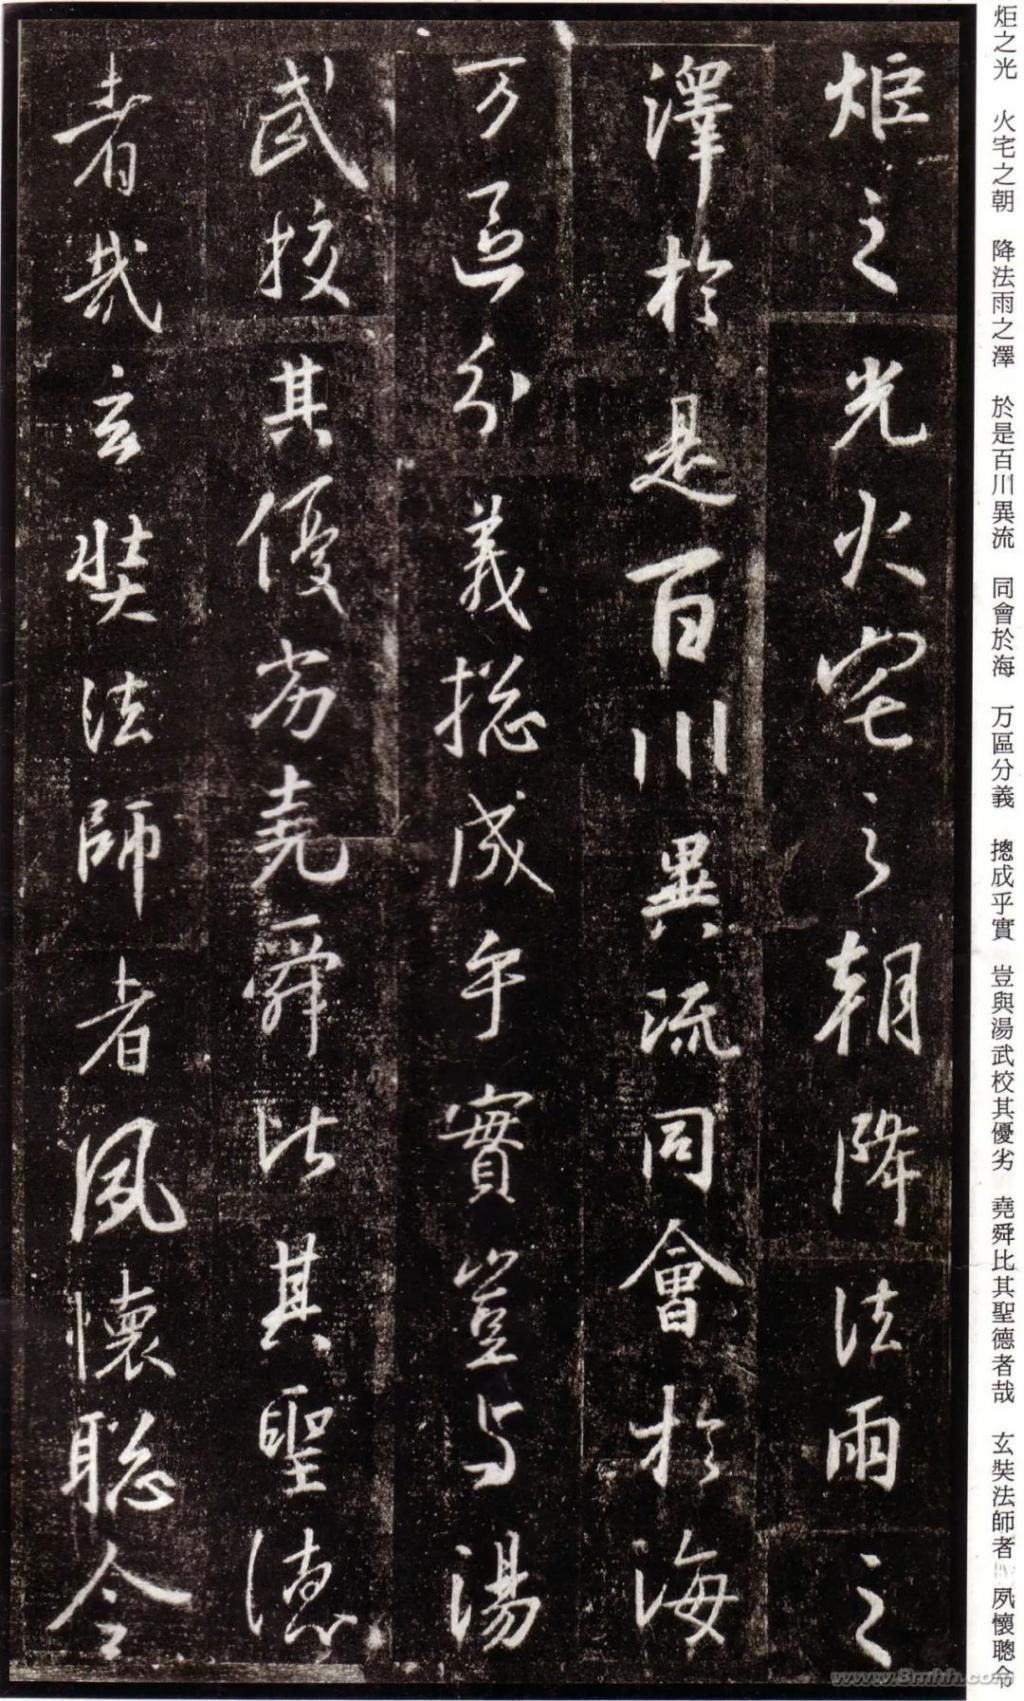 炬之光 火宅之朝 降法雨之澤 於是百川異流 同會於海 万區分義 摠成乎實 豈與湯武校其優劣 堯舜比其聖德者哉 玄奘法師者 夙懷聰令
炬之光火宅之朝降法雨之
澤於是百川異流同會於海
万區分義摠成乎實豈与湯
武挍其優劣堯舜比其聖德
者哉玄奘法師者夙懷聡令